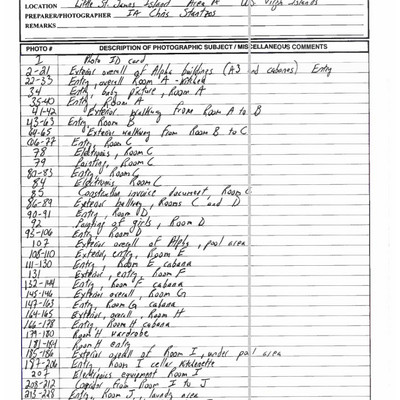 LOCATION Little St. James Island Area A US Virgin Islands
PREPARER/PHOTOGRAPHER IA Chris
REMARKS
PHOTO # DESCRIPTION OF PHOTOGRAPHIC SUBJECT / MISCELLANEOUS COMMENTS
1 Photo ID card
2-21 Exterior overall of Alpha buildings (A3 and cabanas) Entry
22-33 Entry, overall Room A - kitchen
34 Entry, baby picture, Room A
35-40 Entry, Room A
41-42 Exterior walking from Room A to B
43-63 Entry, Room B
64-65 Exterior walkway from Room B to C
66-77 Entry, Room C
78 Electronics, Room C
79 Painting, Room C
80-83 Entry, Room C
84 Electronics, Room C
85 Construction invoice document, Room C
86-89 Exterior hallway, Rooms C and D
90-91 Entry, Room D
92 Painting of girls, Room D
93-106 Entry, Room D
107 Exterior overall of Alpha, pool area
108-110 Exterior, entry, Room E
111-130 Entry, Room E cabana
131 Exterior, entry, Room F
132-144 Entry, Room F cabana
145-146 Exterior overall, Room G
147-163 Entry, Room G cabana
164-165 Exterior, overall, Room H
166-178 Entry, Room H cabana
179-180 Room H wardrobe
181-184 Room H entry
185-186 Exterior overall of Room I, under pool area
187-206 Entry, Room I cellar, kitchenette
207 Electronics equipment Room I
208-212 Corridor from Room I to J
213-228 Entry, Room J, laundry area